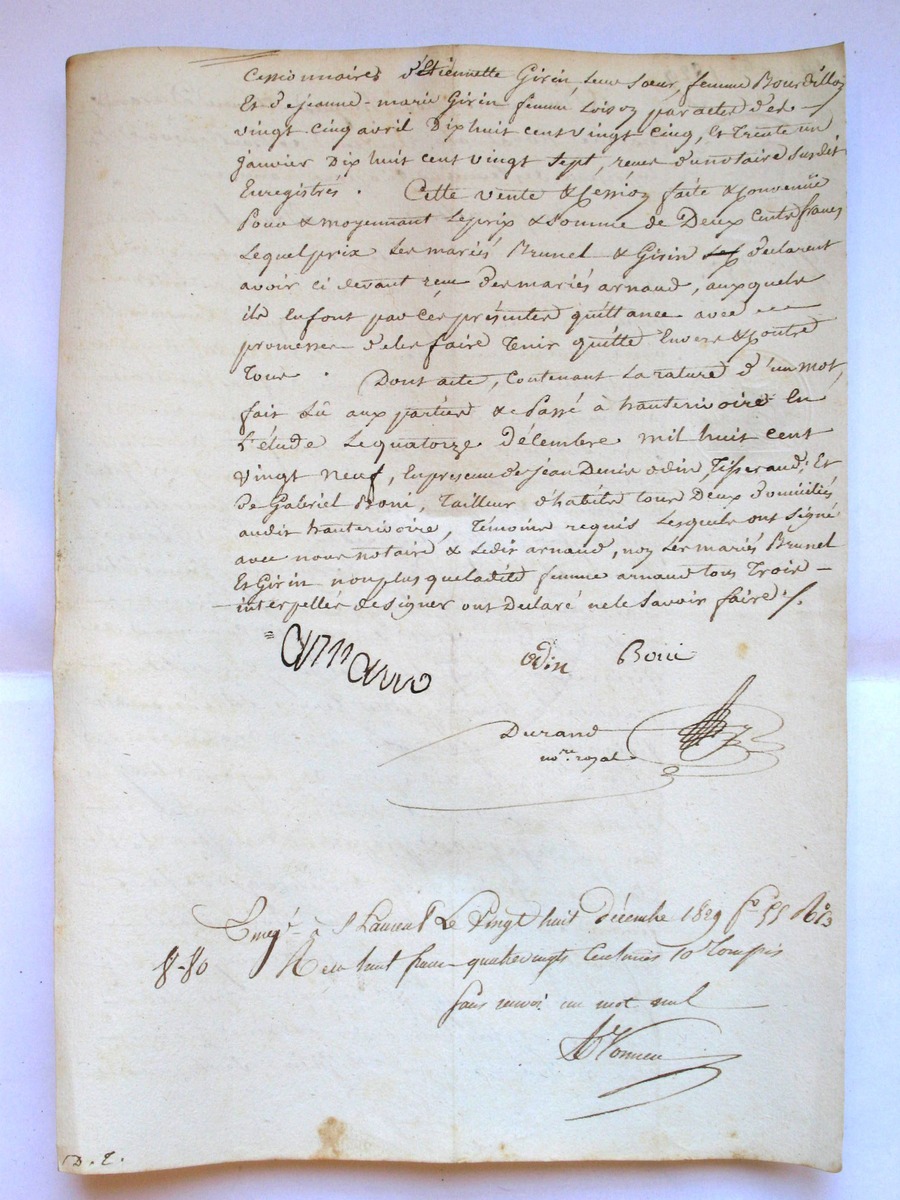 Cessionnaires d'Etiennette Girin, leur soeur, femme Bourdillon
Et de jeanne-marie Girin femme Loison par actes des
vingt cinq avril Dix huit cent vingt cinq, et trente un
janvier Dix huit cent vingt sept, reçus du notaire susdit
Enregistrés. Cette vente & Cession faite & Convenüe
Pour & moyennant le prix & Somme de Deux Cents francs
Lequel prix Les mariés Brunel & Girin déclarent
avoir ci devant reçu des mariés arnaud, auxquels
ils En font par Ces présentes quittance avec
promesse de les faire Tenir quitte Envers & Contre
Tous. Dont acte, Contenant La rature d'un mot,
fait Lû aux parties & Passé à hauterivoire En
L'étude Le quatorze décembre mil huit cent
vingt neuf, En présence de jean Denis odin, Tisserand, Et
de Gabriel Boni, Tailleur d'habits tous Deux domiciliés
audit hauterivoire, Témoins requis Lesquels ont Signé
avec nous notaire & Ledit arnaud, non Les mariés Brunel
Et Girin non plus que ladite femme arnaud tous Trois
interpellés de signer ont Déclaré ne le Savoir faire./.
arnaud odin Boni
Durand
no.re royal
Enreg.é à St Laurent Le Vingt huit Décembre 1829 f.o 55
8-80 Reçu huit francs quatre vingts Centimes 10e Compris
Sans renvoi un mot nul
D. T.